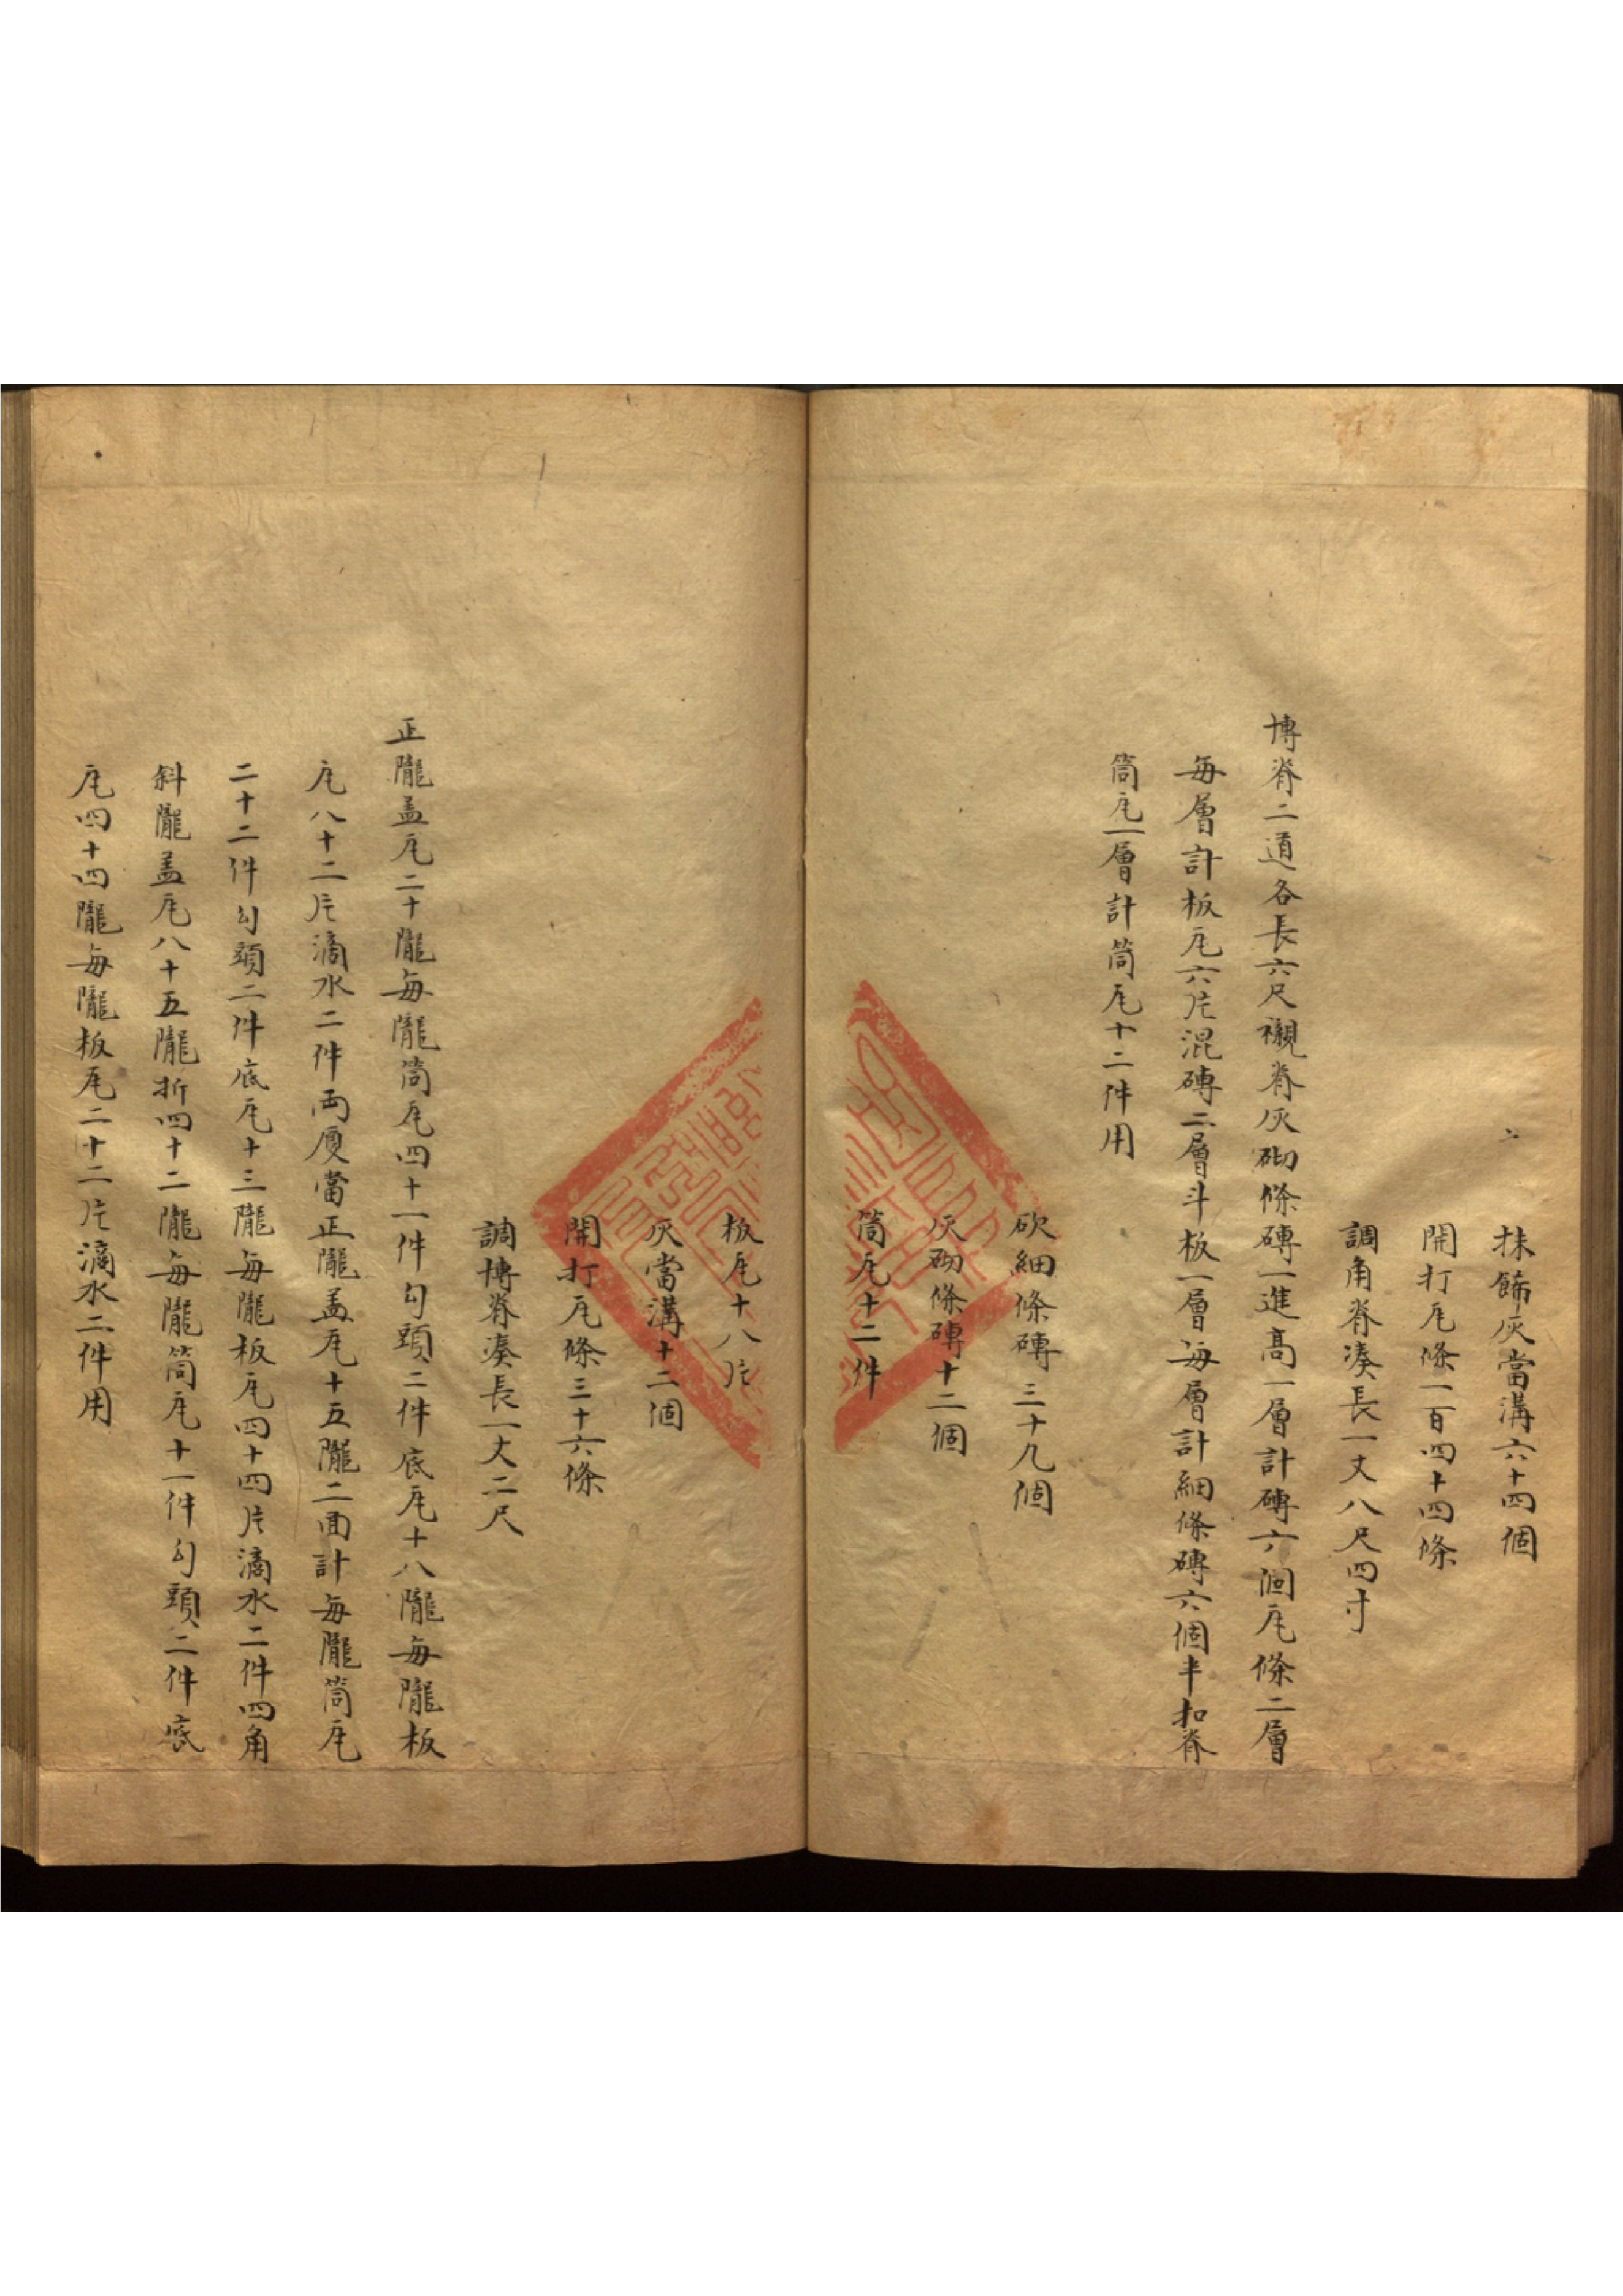 抹飾灰當溝六十四個
開打瓦條一百四十四條
調角脊凑長一丈八尺四寸
博脊二道各長六尺襯脊灰砌條磚一進髙一層計磚六個瓦條二層
每層計板瓦六片混磚二層斗板一層每層計細條磚六個半扣脊
筒瓦一層計筒瓦十二件用
砍細條磚三十九個
灰砌條磚十二個
筒瓦十二件
板瓦十八片
灰當溝十二個
開打瓦條三十六條
調博脊凑長一丈二尺
正隴盖瓦二十隴每隴筒瓦四十一件勾頭二件底瓦十八隴每隴板
瓦八十二片滴水二件両厦當正隴盖瓦十五隴二面計每隴筒瓦
二十二件勾頭二件底瓦十三隴每隴板瓦四十四片滴水二件四角
斜隴盖瓦八十五隴折四十二隴每隴筒瓦十一件勾頭二件底
瓦四十四隴每隴板瓦二十二片滴水二件用